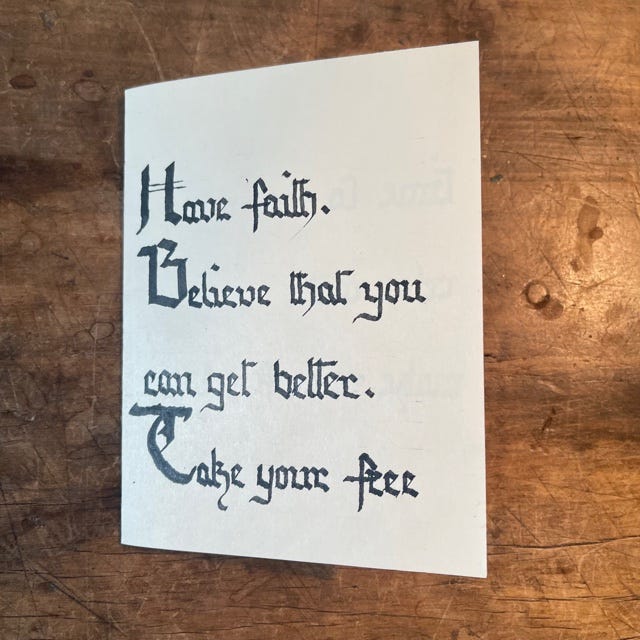 Have faith.
Believe that you
can get better.
Take your free